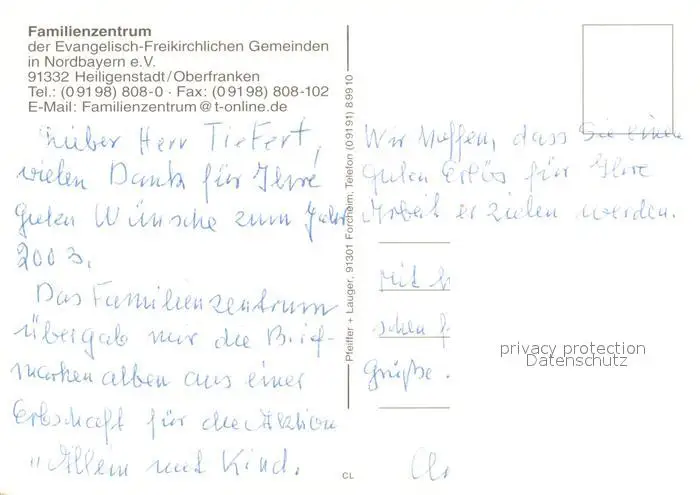 Familienzentrum
der Evangelisch-Freikirchlichen Gemeinden
in Nordbayern e.V.
91332 Heiligenstadt/Oberfranken
Tel.: (0 91 98) 808-0 · Fax: (0 91 98) 808-102
E-Mail: Familienzentrum@t-online.de
Lieber Herr Tiefert,
vielen Dank für Ihre
guten Wünsche zum Jahr
2003.
Das Familienzentrum
übergab mir die Brief-
marken alben aus einer
Erbschaft für die Aktion
"Allein mit Kind.
Pfeiffer + Lauger, 91301 Forchheim, Telefon (09191) 8 99 10
CL
Wir hoffen, dass Sie einen
guten Erlös für Ihre
Arbeit erzielen werden.
Mit
schen
Grüße.
privacy protection
Datenschutz